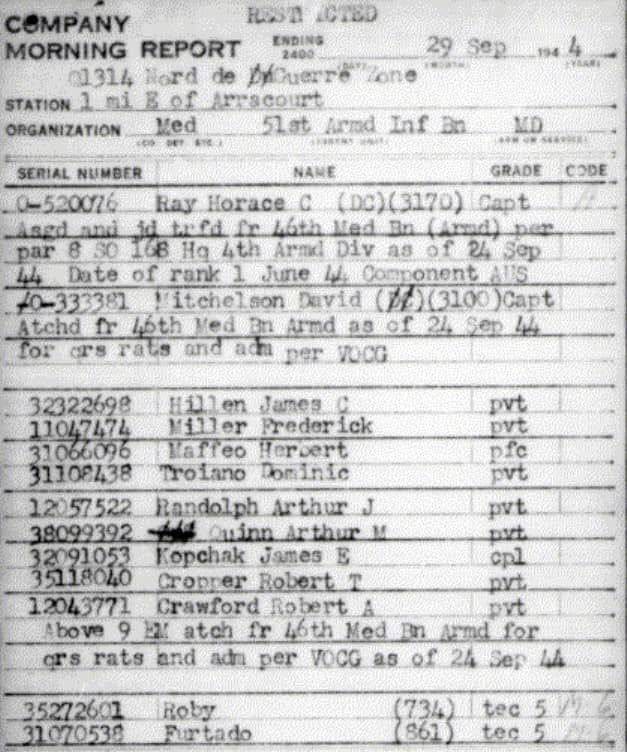 RESTRICTED
COMPANY
MORNING REPORT ENDING 2400 29 Sep 1944
(DAY) (MONTH) (YEAR)
Q1314 Nord de Guerre Zone
STATION 1 mi E of Arracourt
ORGANIZATION Med 51st Armd Inf Bn MD
(CO. DET. ETC.) (PARENT UNIT) (ARM OR SERVICE)
SERIAL NUMBER NAME GRADE CODE
O-520076 Ray Horace C (DC)(3170) Capt
Asgd and jd trfd fr 46th Med Bn (Armd) per
par 8 SO 168 Hq 4th Armd Div as of 24 Sep
44 Date of rank 1 June 44 Component AUS
O-333381 Mitchelson David (3100)Capt
Atchd fr 46th Med Bn Armd as of 24 Sep 44
for qrs rats and adm per VOCG
32322698 Hillen James C pvt
11047474 Miller Frederick pvt
31066096 Maffeo Herbert pfc
31108438 Troiano Dominic pvt
12057522 Randolph Arthur J pvt
38099392 Quinn Arthur M pvt
32091053 Kopchak James E cpl
35118040 Cropper Robert T pvt
12043771 Crawford Robert A pvt
Above 9 EM atch fr 46th Med Bn Armd for
qrs rats and adm per VOCG as of 24 Sep 44
35272601 Roby (734) tec 5
31070538 Furtado (861) tec 5